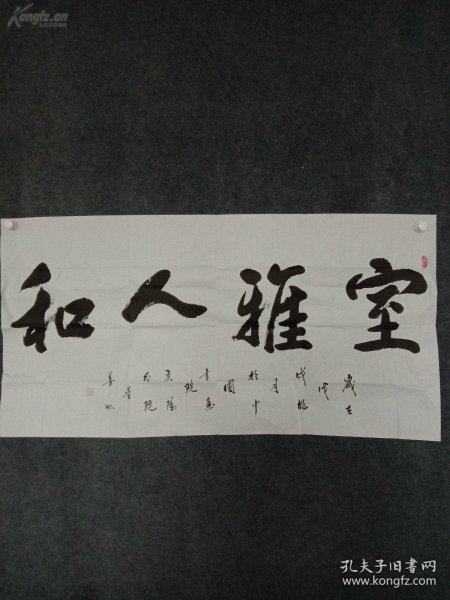 Kongfz.cn
室雅人和
歲在
戊
戌
月
於中
國
書畫
院
分院
孔夫子旧书网
www.kongfz.com